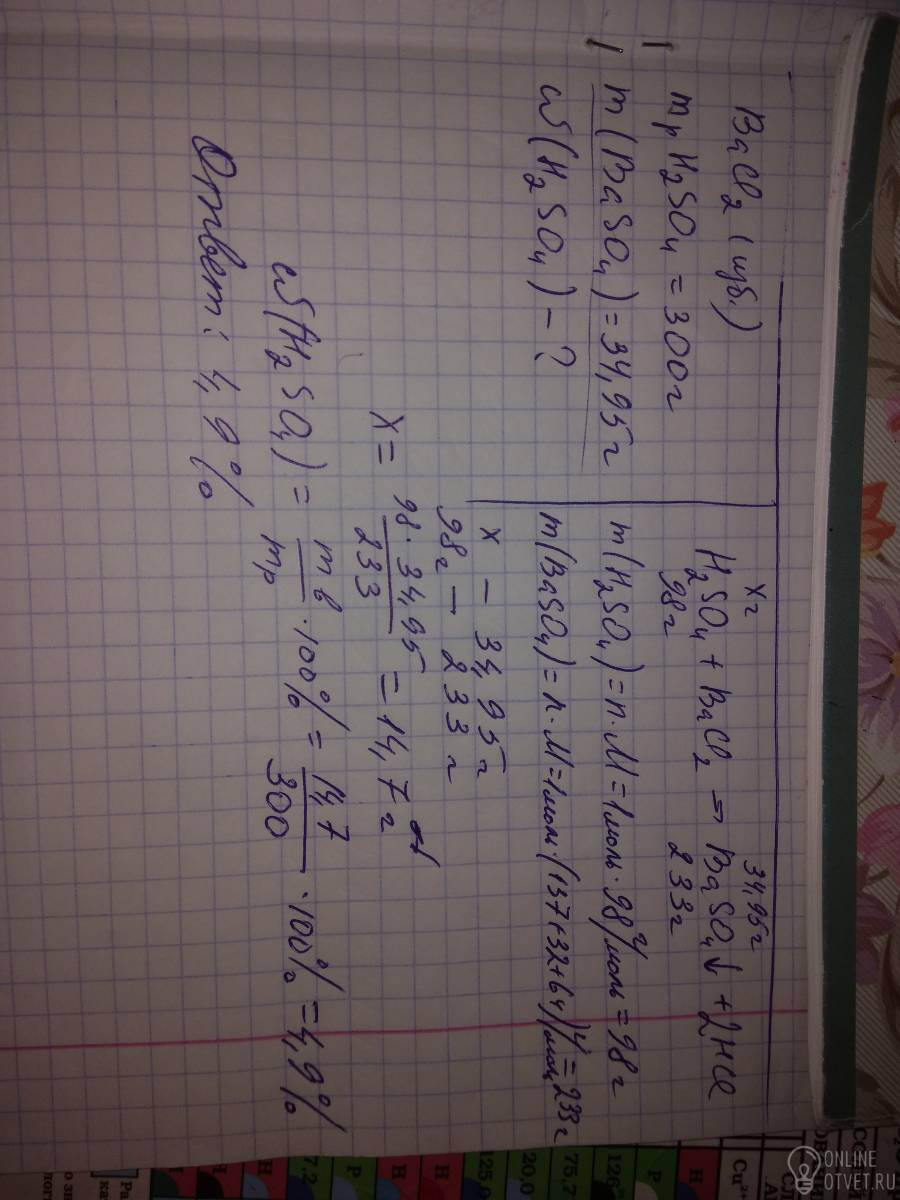 BaCl₂ (изб.)
mр H₂SO₄ = 300г
m(BaSO₄) = 34,95г
ω(H₂SO₄) - ?
xг 34,95г
H₂SO₄ + BaCl₂ → BaSO₄↓ + 2HCl
98г 233г
m(H₂SO₄) = n · M = 1моль · 98 г/моль = 98г
m(BaSO₄) = n · M = 1моль · (137+32+64) г/моль = 233г
x – 34,95г
98г – 233г
x = 98 · 34,95 / 233 = 14,7г
ω(H₂SO₄) = mв / mр · 100% = 14,7 / 300 · 100% = 4,9%
Ответ: 4,9%
Cu²
H
P
126
75.7
20.0
125.0
7.2
ONLINE
OTVET.RU